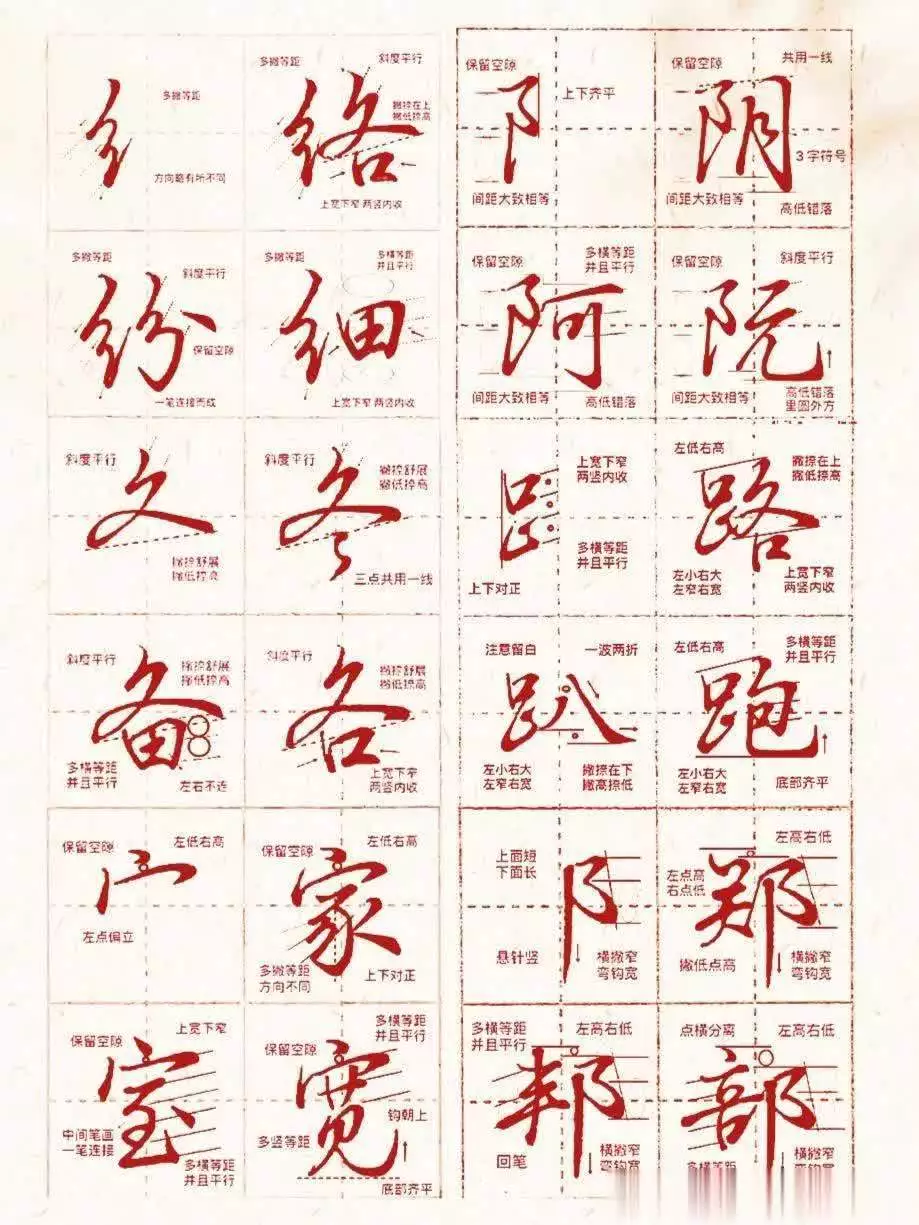 多撇等距
纟
方向略有所不同
多撇等距
斜度平行
络
撇捺在上
撇低捺高
上宽下窄 两竖内收
多撇等距
斜度平行
纷
保留空隙
一笔连接而成
多撇等距
多横等距
并且平行
细
上宽下窄 两竖内收
斜度平行
文
撇捺舒展
撇低捺高
斜度平行
撇捺舒展
撇低捺高
冬
三点共用一线
斜度平行
撇捺舒展
撇低捺高
备
多横等距
并且平行
左右不连
斜度平行
撇捺舒展
撇低捺高
各
上宽下窄
两竖内收
保留空隙
左低右高
宀
左点偏立
保留空隙
左低右高
家
多撇等距
方向不同
上下对正
保留空隙
上宽下窄
室
中间笔画
一笔连接
多横等距
并且平行
保留空隙
多横等距
并且平行
宽
多竖等距
钩朝上
底部齐平
保留空隙
阝
上下齐平
间距大致相等
保留空隙
共用一线
阴
3字符号
间距大致相等
高低错落
保留空隙
多横等距
并且平行
阿
间距大致相等
高低错落
保留空隙
斜度平行
阮
间距大致相等
高低错落
里圆外方
上宽下窄
两竖内收
多横等距
并且平行
上下对正
左低右高
撇捺在上
撇低捺高
路
左小右大
左窄右宽
上宽下窄
两竖内收
注意留白
一波两折
趴
左小右大
左窄右宽
撇捺在下
撇高捺低
左低右高
多横等距
并且平行
跑
左小右大
左窄右宽
底部齐平
上面短
下面长
阝
悬针竖
横撇窄
弯钩宽
左高右低
左点高
右点低
郑
撇低点高
横撇窄
弯钩宽
多横等距
并且平行
左高右低
邦
回笔
横撇窄
弯钩宽
点横分离
左高右低
部
多横等距
横撇窄